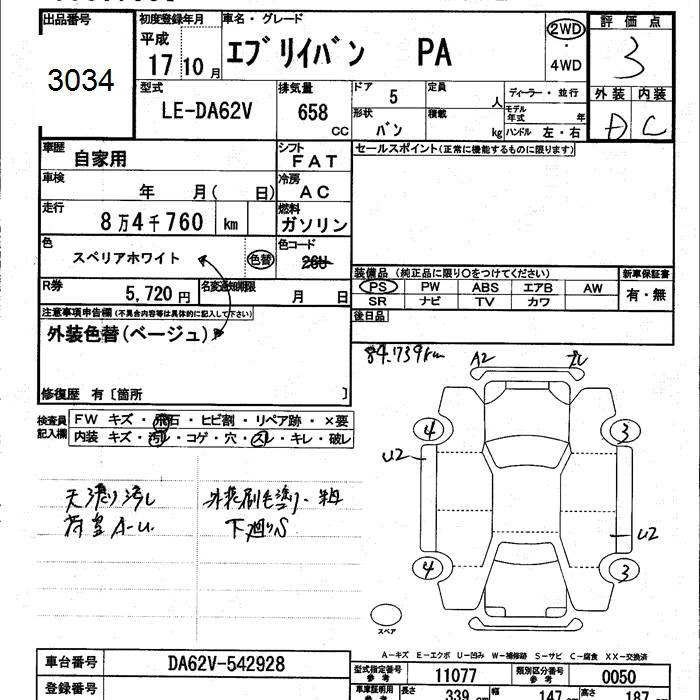 出品番号
3034
初度登録年月
平成
17 10 月
車名・グレード
エブリイバン PA
2WD
・
4WD
評価点
3
外装 内装
D C
型式
LE-DA62V
排気量
658
CC
ドア
5
定員
人
形状
バン
積載
kg
ディーラー・並行
モデル年式 年
ハンドル 左・右
車歴
自家用
シフト
FAT
セールスポイント(正常に機能するものに限ります)
車検
年 月( 日)
冷房
AC
走行
8万4千760 km
燃料
ガソリン
色
スペリアホワイト
色替
色コード
26U
R券
5,720 円
名変通知期限
月 日
装備品(純正品に限り○をつけてください)
新車保証書
PS PW ABS エアB AW
SR ナビ TV カワ
有・無
後日品
注意事項申告欄(不具合内容等は具体的に記入して下さい)
外装色替(ベージュ)
修復歴 有〔箇所 〕
84.739km
検査員記入欄
FW キズ・飛石・ヒビ割・リペア跡・×要
内装 キズ・汚レ・コゲ・穴・スレ・キレ・破レ
天張り汚レ
荷室A-U
下廻りS
A2
4
3
U2
U2
4
3
スペア
A-キズ E-エクボ U-凹み W-補修跡 S-サビ C-腐食 XX-交換済
車台番号
DA62V-542928
型式指定番号
参考
11077
類別区分番号
参考
0050
登録番号
車庫証明用
参考
長さ
339 cm
幅
147 cm
高さ
187 cm